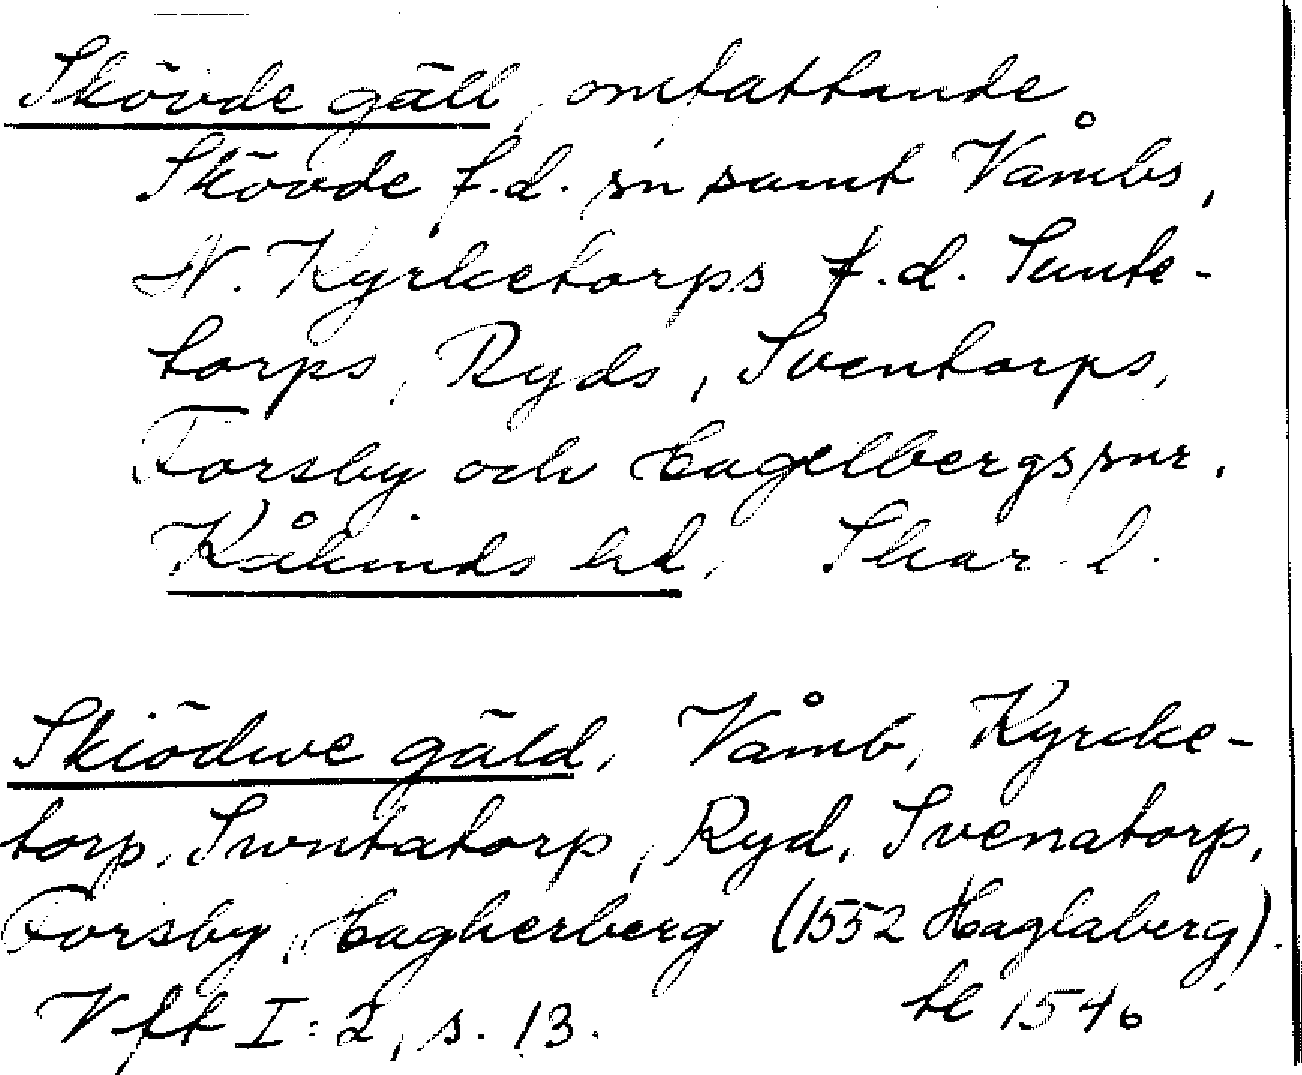 Skövde gäll, omfattande
Skövde f.d. sn samt Våmbs,
N. Kyrketorps f.d. Sunte-
torps, Ryds, Sventorps,
Forsby och Hagelbergs snr.
Kåkinds hd, Skar. l.
Skiödwe gäld, Våmb, Kyrcke-
torp, Swntatorp, Ryd, Svenatorp,
Forsby, Hagherberg (1552 Haglaberg).
Vfft I:2, s. 13. te 1546